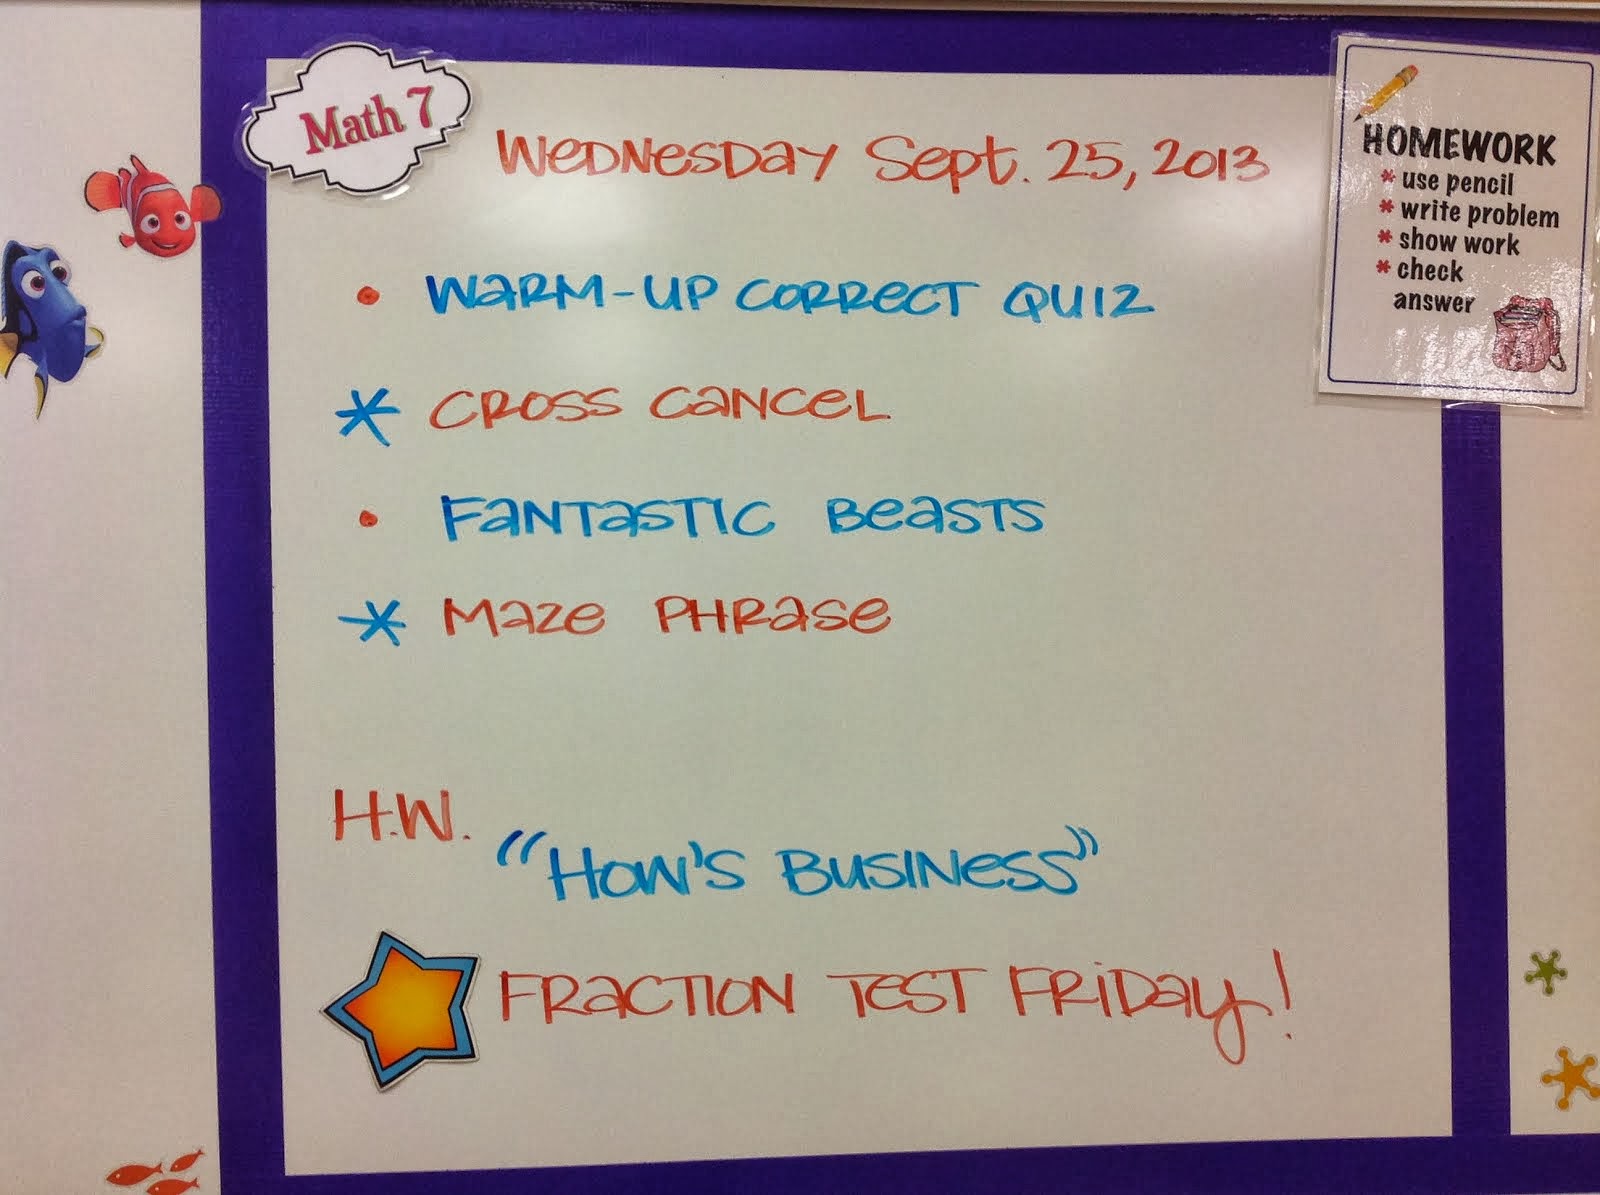 Math 7
Wednesday Sept. 25, 2013
• Warm-up correct quiz
* Cross cancel
• Fantastic Beasts
* Maze Phrase
H.W.
"How's Business"
Fraction Test Friday!
HOMEWORK
* use pencil
* write problem
* show work
* check
answer